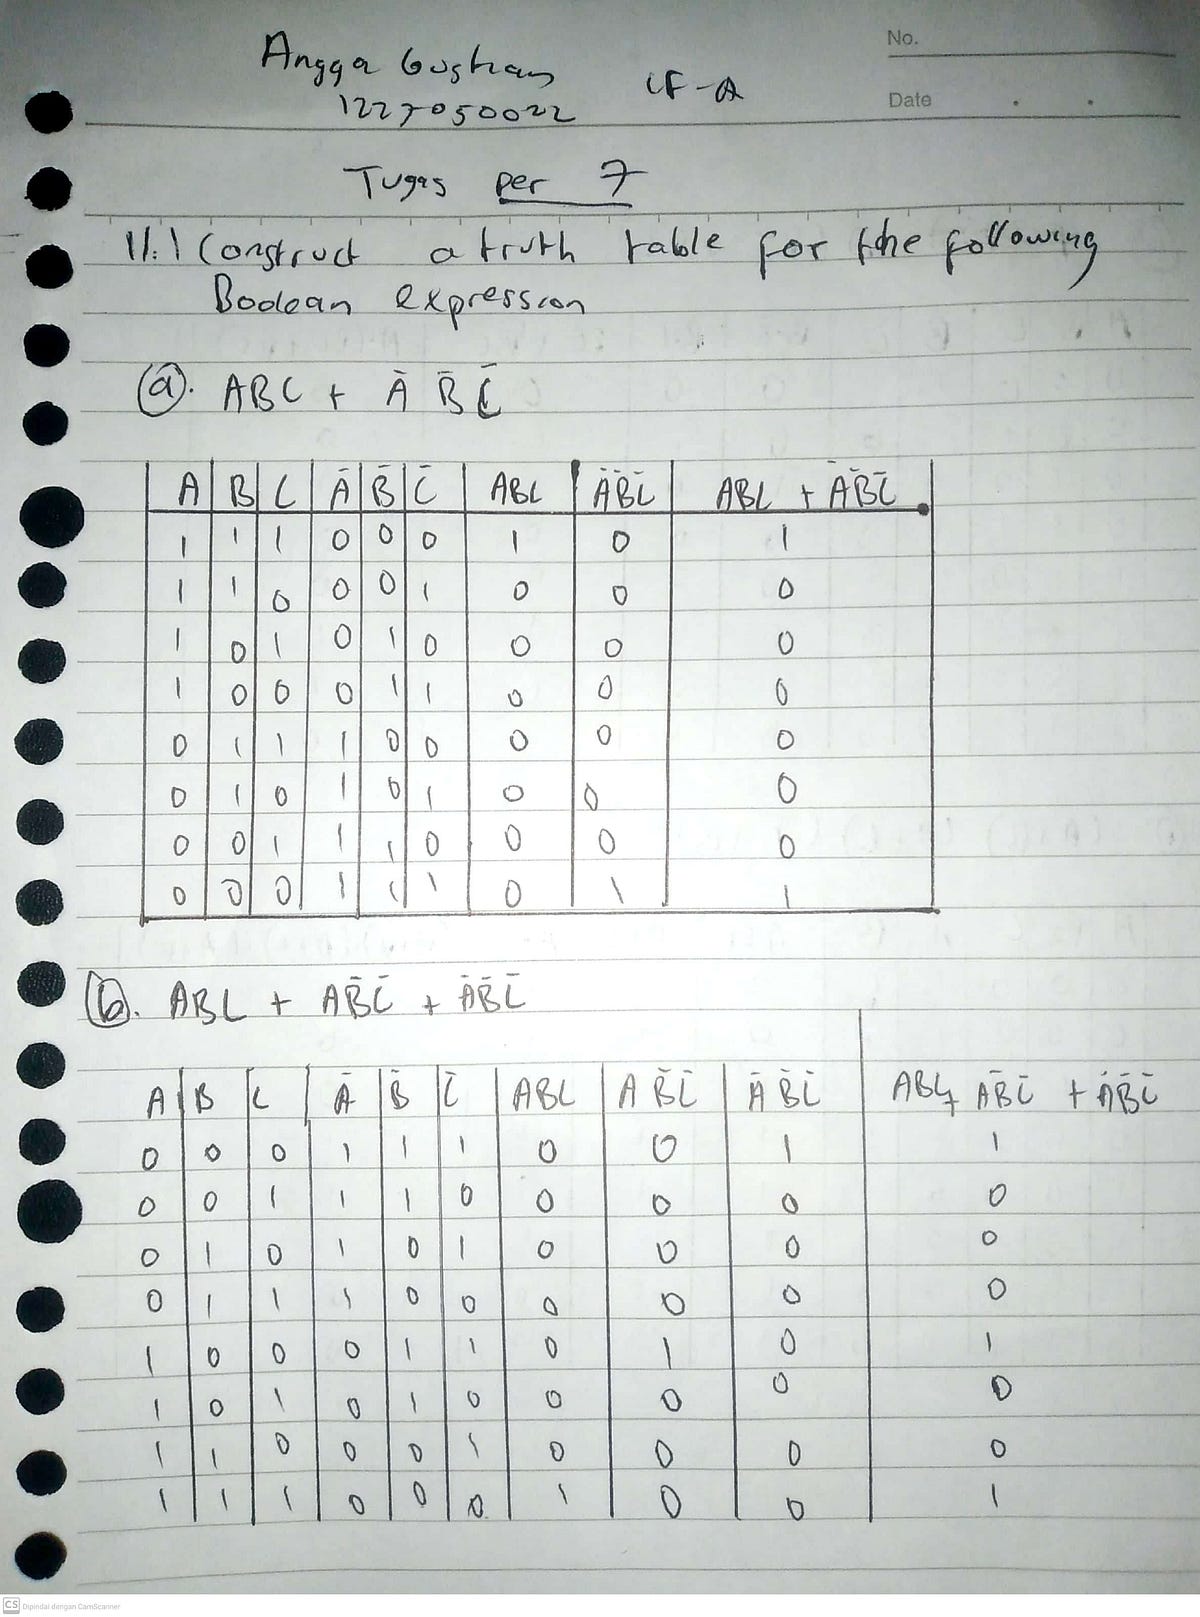 No.
Angga Gustian
LF-A
Date
1227050022
Tugas per 7
11.1 Construct a truth table for the following
Boolean expression
(a). ABC + A̅ B̅ C̅
A B C A̅ B̅ C̅ ABC A̅B̅C̅ ABC + A̅B̅C̅
1 1 1 0 0 0 1 0 1
1 1 0 0 0 1 0 0 0
1 0 1 0 1 0 0 0 0
1 0 0 0 1 1 0 0 0
0 1 1 1 0 0 0 0 0
0 1 0 1 0 1 0 0 0
0 0 1 1 1 0 0 0 0
0 0 0 1 1 1 0 1 1
(b). ABC + AB̅C̅ + A̅B̅C̅
A B C A̅ B̅ C̅ ABC AB̅C̅ A̅B̅C̅ ABC + AB̅C̅ + A̅B̅C̅
0 0 0 1 1 1 0 0 1 1
0 0 1 1 1 0 0 0 0 0
0 1 0 1 0 1 0 0 0 0
0 1 1 1 0 0 0 0 0 0
1 0 0 0 1 1 0 1 0 1
1 0 1 0 1 0 0 0 0 0
1 1 0 0 0 1 0 0 0 0
1 1 1 0 0 0 1 0 0 1
CS Dipindai dengan CamScanner